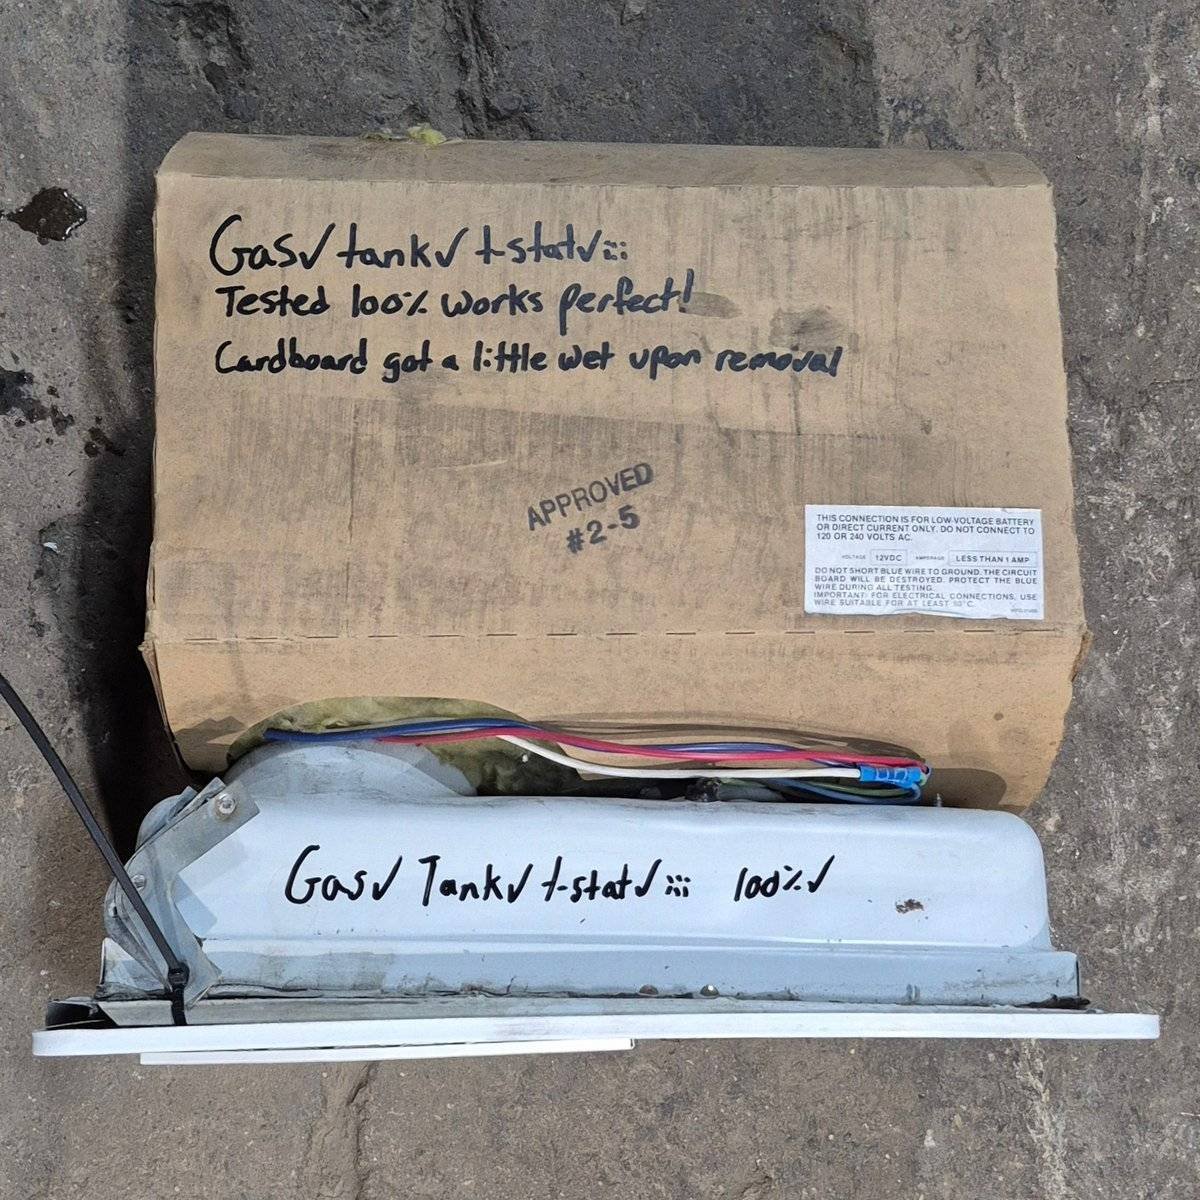 Gas✓ tank✓ t-stat✓
Tested 100% works perfect!
Cardboard got a little wet upon removal
APPROVED
#2-5
THIS CONNECTION IS FOR LOW-VOLTAGE BATTERY
OR DIRECT CURRENT ONLY. DO NOT CONNECT TO
120 OR 240 VOLTS AC.
VOLTAGE 12VDC AMPERAGE LESS THAN 1 AMP
DO NOT SHORT BLUE WIRE TO GROUND. THE CIRCUIT
BOARD WILL BE DESTROYED. PROTECT THE BLUE
WIRE DURING ALL TESTING.
IMPORTANT: FOR ELECTRICAL CONNECTIONS, USE
WIRE SUITABLE FOR AT LEAST 90°C.
Gas✓ Tank✓ t-stat✓ 100%✓